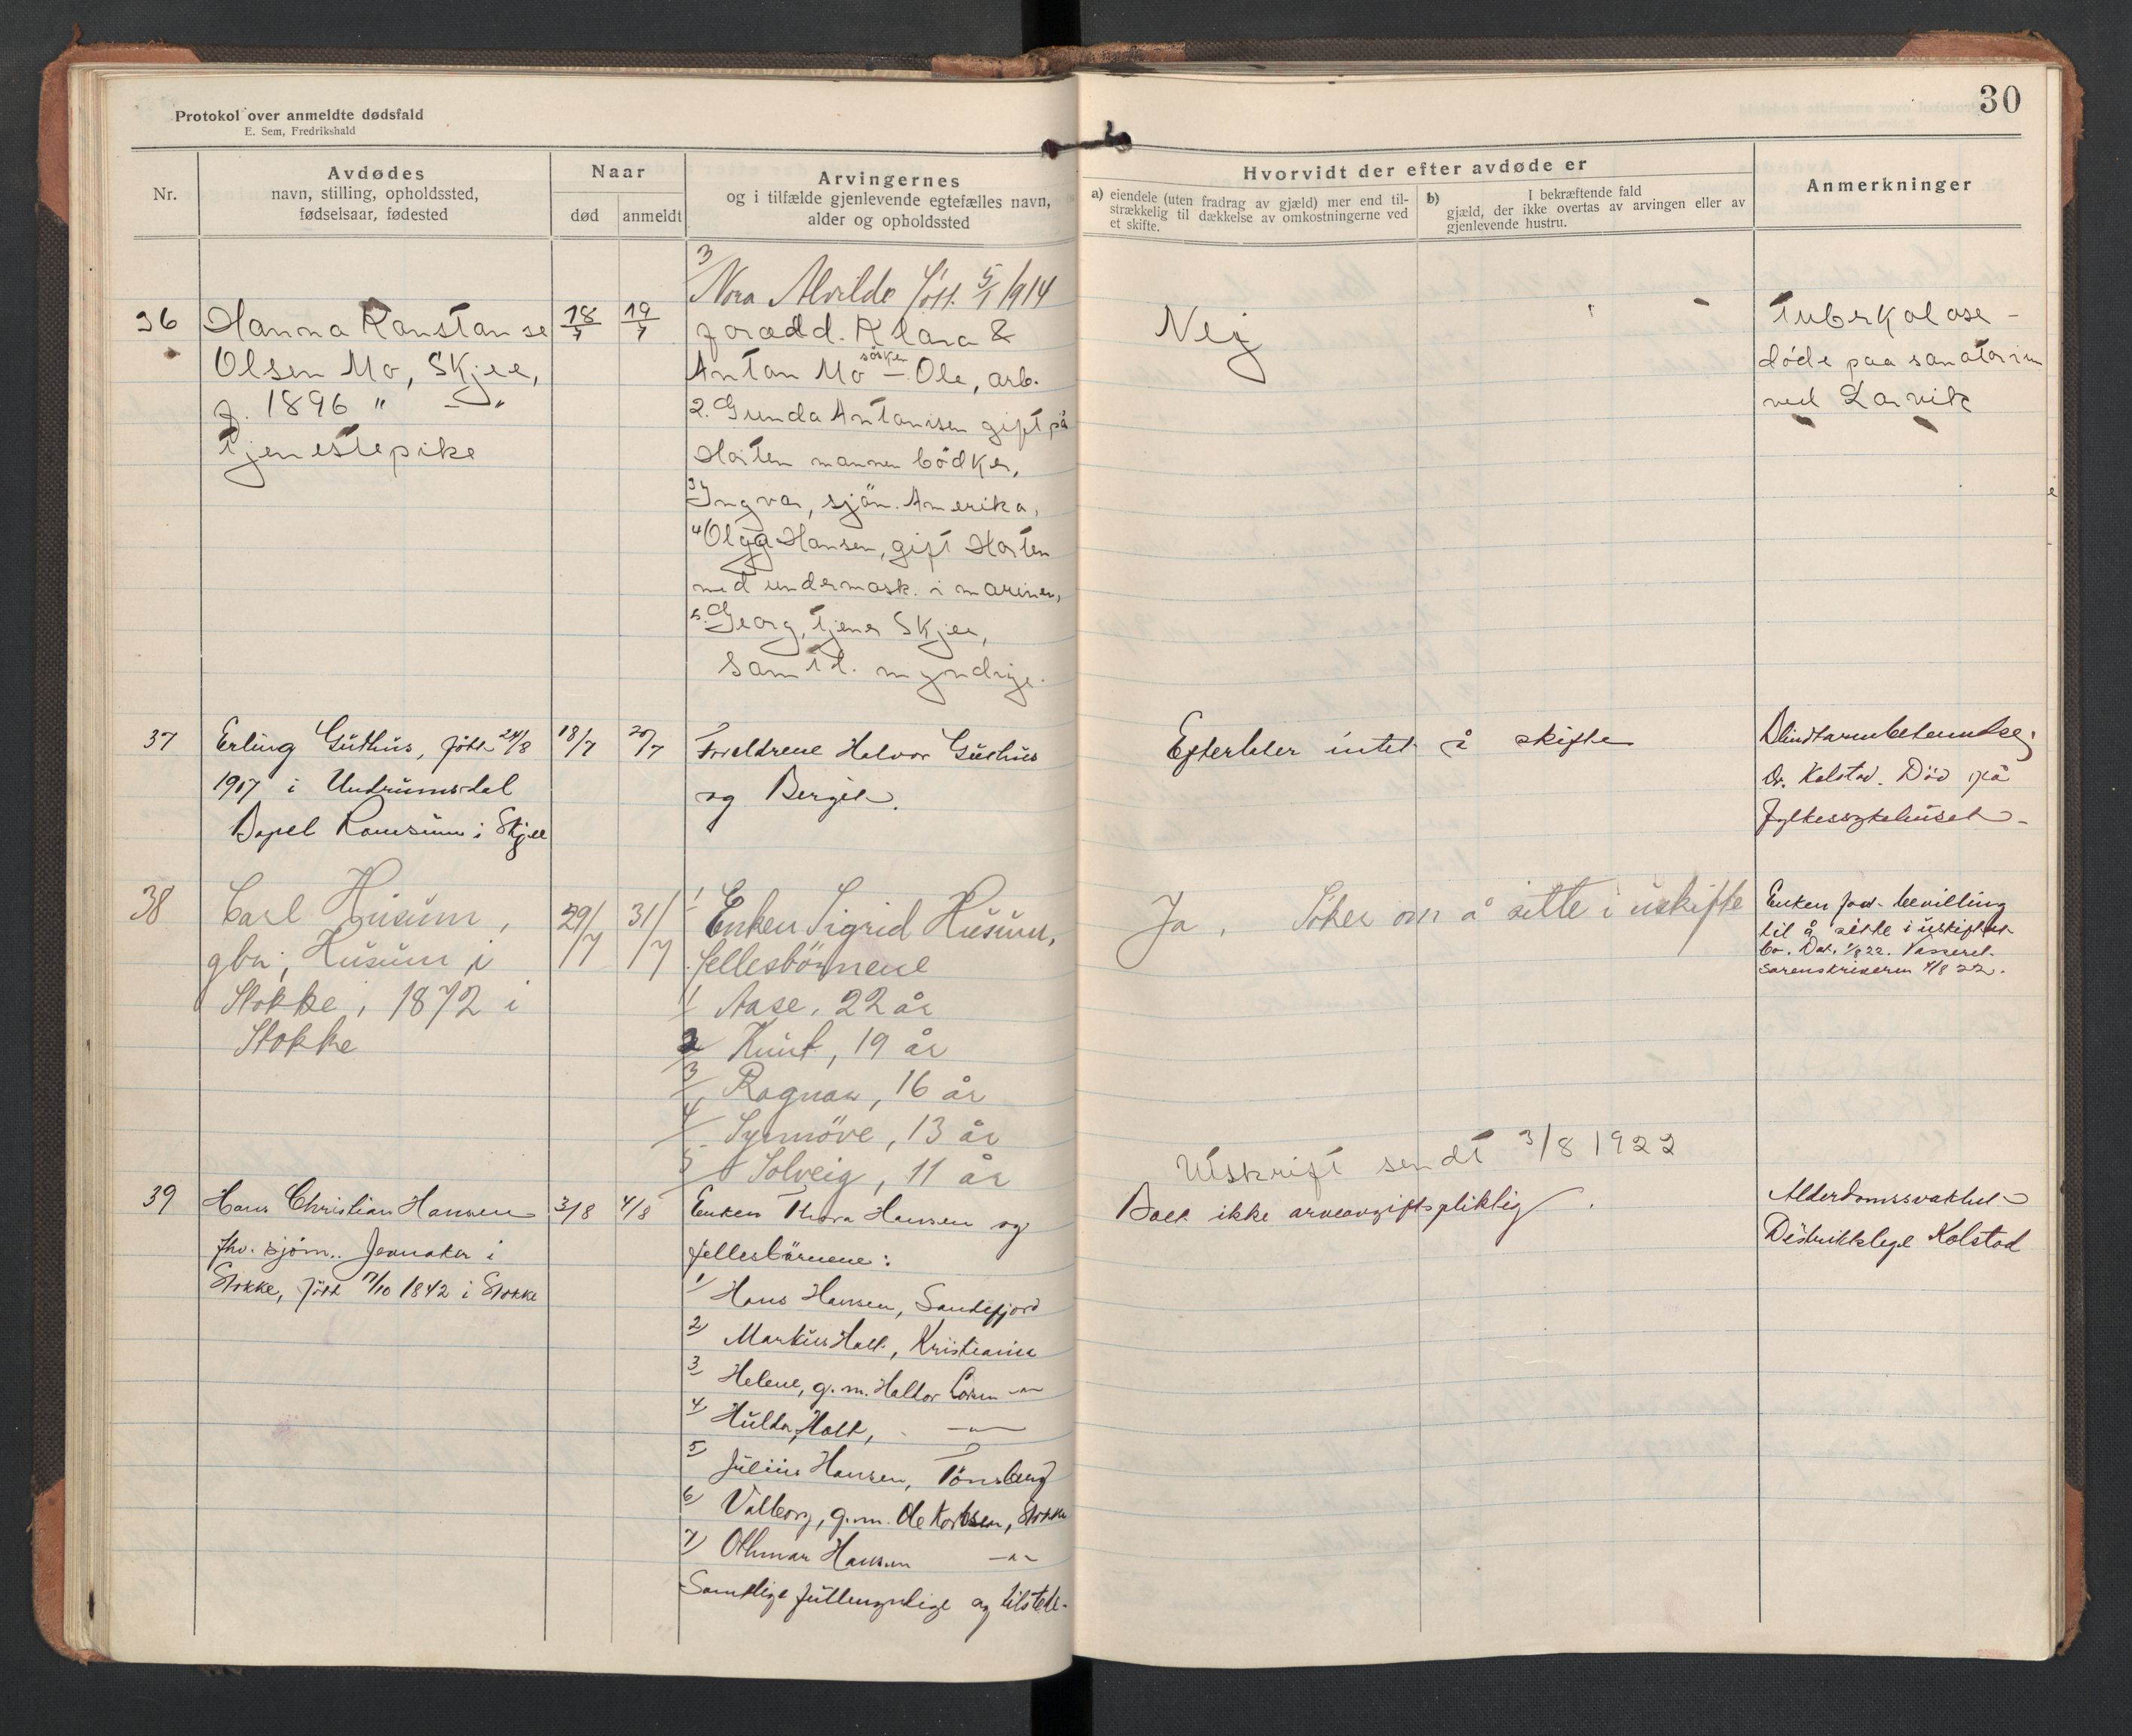 30
Protokol over anmeldte dødsfald
E. Sem, Fredrikshald
Nr.
Avdødes
navn, stilling, opholdssted,
fødselsaar, fødested
Naar
død
anmeldt
Arvingernes
og i tilfælde gjenlevende egtefælles navn,
alder og opholdssted
Hvorvidt der efter avdøde er
a) eiendele (uten fradrag av gjæld) mer end til-
strækkelig til dækkelse av omkostningerne ved
et skifte.
b) I bekræftende fald
gjæld, der ikke overtas av arvingen eller av
gjenlevende hustru.
Anmerkninger
3/
Nora Alvilde født. 5/1 1914
36
Hanna Konstanse
Olsen Mo, Skjee,
f. 1896 " - "
tjenestepike
18/7
19/7
forældd. Klara &
Antan Mo søsken - Ole, arb.
2. Gunda Antonisen gift på
Horten mannen bødker,
3/ Ingvar, sjöm. Amerika,
4/ Olga Hansen, gift Horten
med undermask. i marinen,
5. Georg, tjener Skjee,
samtl. myndige.
Nej
Tuberkolose -
døde paa sanatorium
ved Larvik
37
Erling Guthus, født 24/8
1907 i Undrumsdal
Bopel Ramsum i Skjee
18/7
20/7
Foreldrene Halvor Guthus
og Bergit.
Efterlater intet å skifte
Blindtarmbetendelse,
Dr. Kolstad. Död på
Fylkessykehuset -
38
Carl Husum,
gbr., Husum i
Stokke, 1872 i
Stokke
29/7
31/7
1/ Enken Sigrid Husum,
fellesbörnene
1/ Aase, 22 år
2 Knut, 19 år
3/ Ragnar, 16 år
4/ Synnöve, 13 år
5/ Solveig, 11 år
Ja, Söker om å sitte i uskifte
Enken fåt bevilling
til å sitte i uskiftet
bo. Dat. 1/8 22. Vasseret
Sorenskriveren 4/8 22.
Utskrift sendt 3/8 1922
39
Hans Christian Hansen
fhv. sjöm. Jernaker i
Stokke, född 17/10 1842 i Stokke
3/8
4/8
Enken Thora Hansen og
fellesbörnene:
1/ Hans Hansen, Sandefjord
2/ Markus Holt, Kristiania
3 Helene, g. m. Haldor -"-
4/ Hulda Holt, -"-
5/ Julius Hansen, Tönsberg
6/ Valborg, g.m. Ole Karlsen, Stokke
7/ Othmar Hansen -"-
Samtlige fullmyndige og tilstede-
Boet ikke arveavgiftspliktig.
Alderdomssvakhet
Distriktslege Kolstad